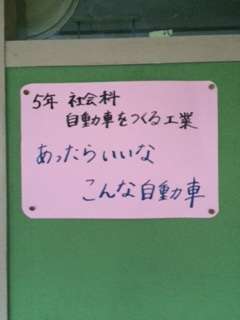 5年 社会科
自動車をつくる工業
あったらいいな
こんな自動車